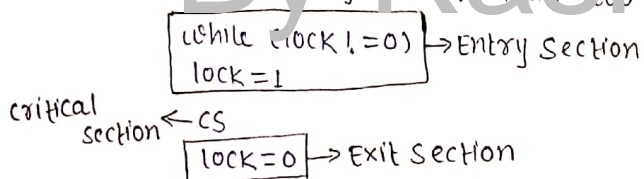 By
while (lock != 0) → Entry Section
lock = 1
critical section ← CS
lock = 0 → Exit Section